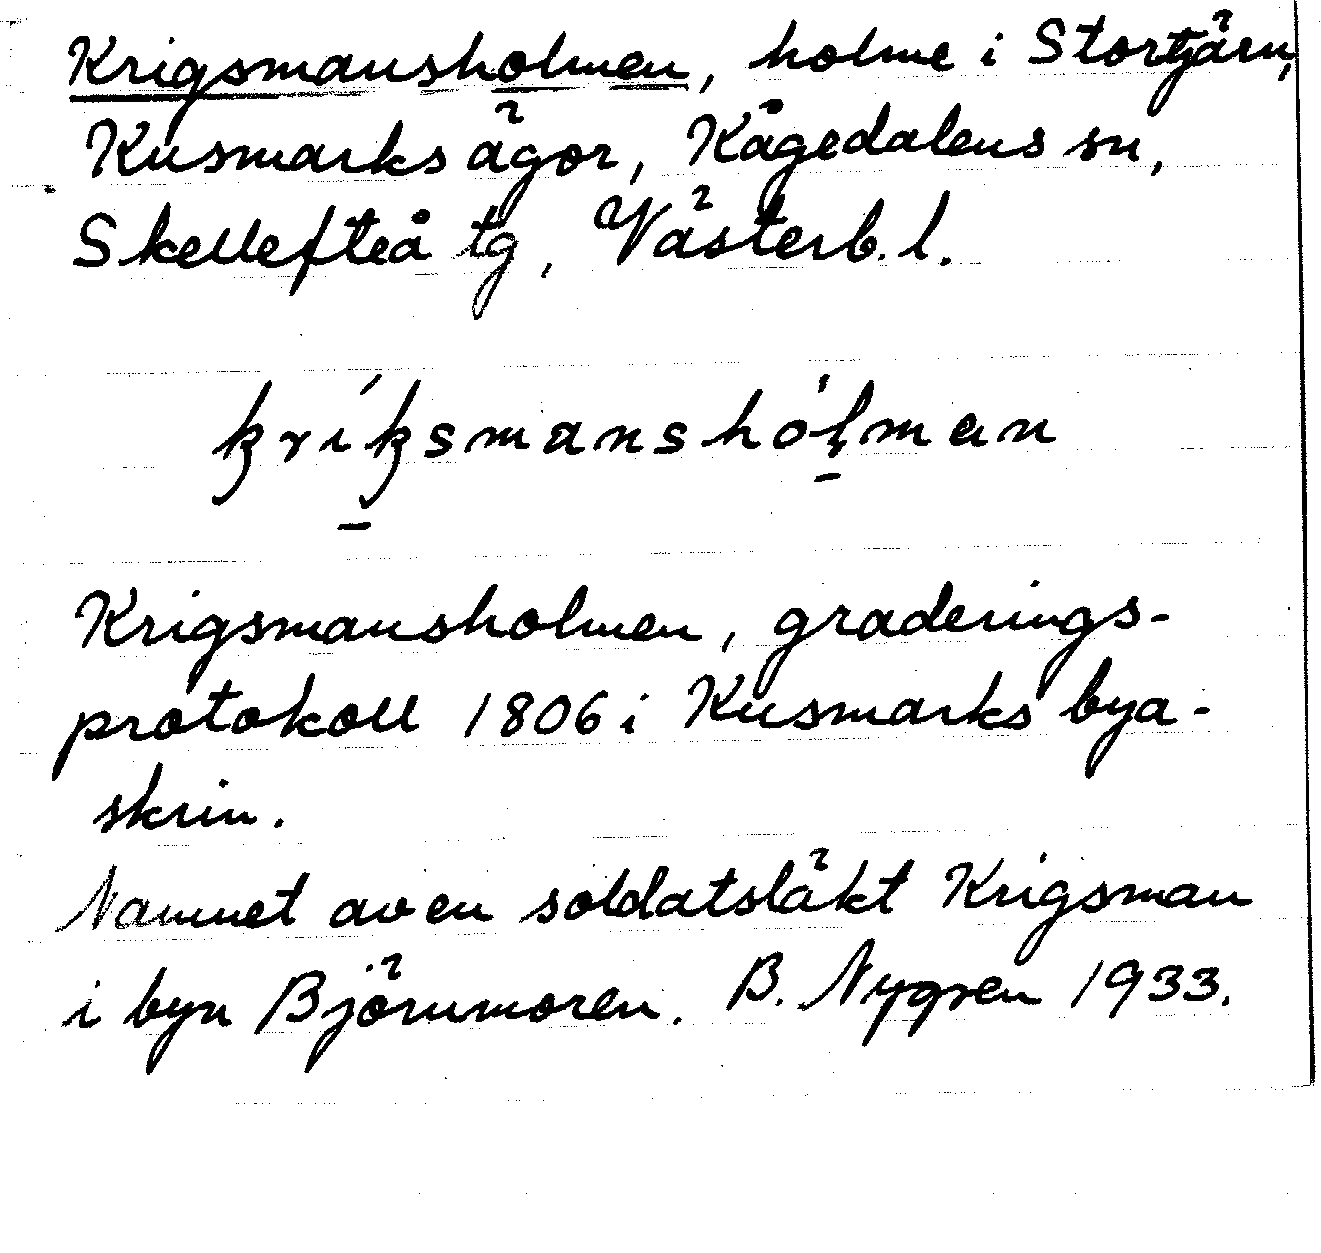 Krigsmansholmen, holme i Stortjärn,
Kusmarks ägor, Kågedalens sn,
Skellefteå tg, Västerb. l.
kríksmanshólman
Krigsmansholmen, graderings-
protokoll 1806 i Kusmarks bya-
skrin.
Namnet av en soldatsläkt Krigsman
i byn Björnmoren. B. Nygren 1933.